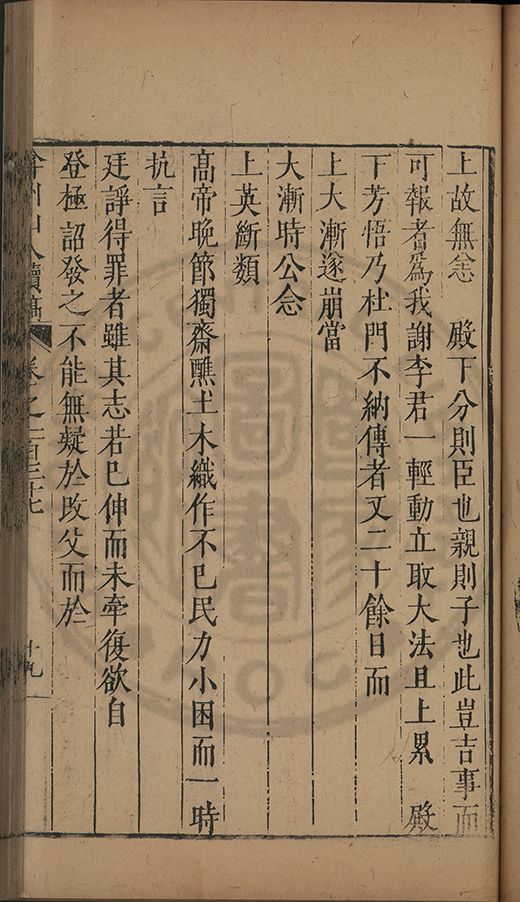 上故無恙　殿下分則臣也親則子也此豈吉事而
可報者爲我謝李君一輕動立取大法且上累　殿
下芳悟乃杜門不納傳者又二十餘日而
上大漸遂崩當
大漸時公念
上英斷類
髙帝晚節獨齋醮土木織作不已民力小困而一時
抗言
廷諍得罪者雖其志若巳伸而未牽復欲自
登極詔發之不能無疑於改父而於
弇州山人續稿　卷之一百三十七　十九